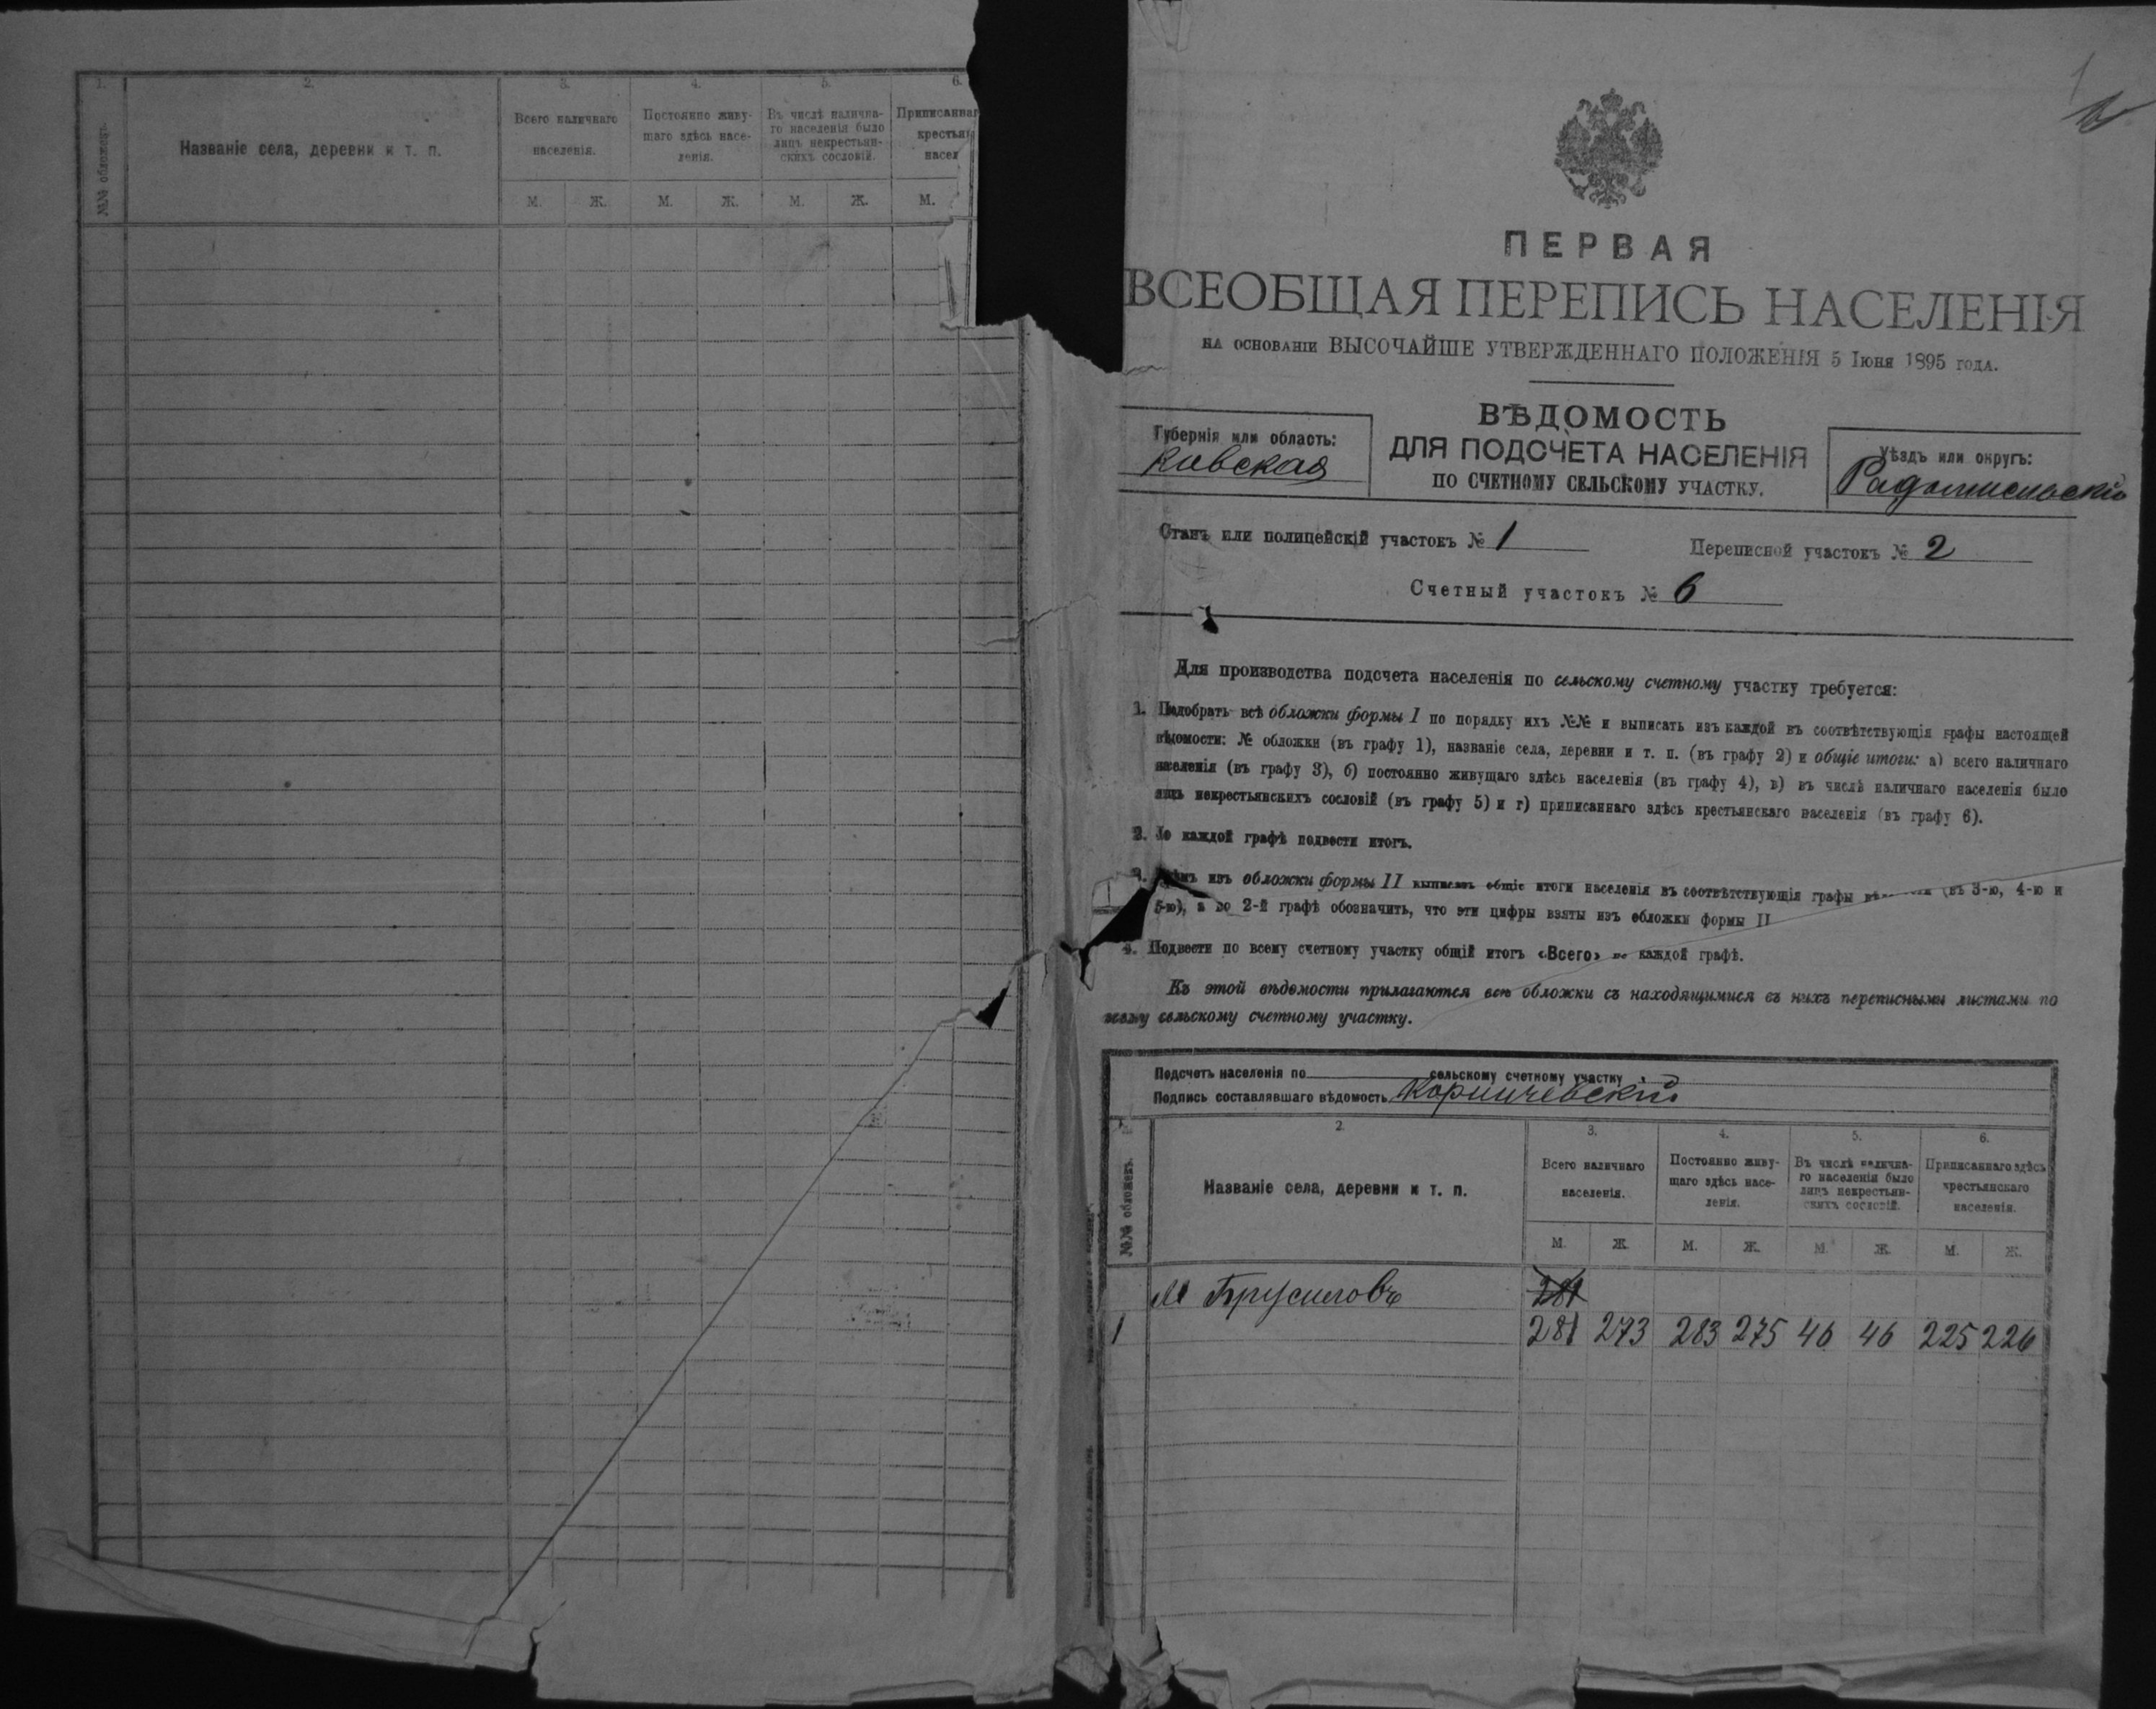 1. 2. 3. 4. 5. 6.
№№ обложекъ.
Названіе села, деревни и т. п.
Всего наличнаго
населенія.
Постоянно живу-
щаго здѣсь насе-
ленія.
Въ числѣ налична-
го населенія было
лицъ некрестьян-
скихъ сословій.
Приписаннаг
крестьян
насел
М. Ж. М. Ж. М. Ж. М.
1
ПЕРВАЯ
ВСЕОБЩАЯ ПЕРЕПИСЬ НАСЕЛЕНІЯ
НА ОСНОВАНІИ ВЫСОЧАЙШЕ УТВЕРЖДЕННАГО ПОЛОЖЕНІЯ 5 Іюня 1895 ГОДА.
Губернія или область:
Кивская
ВѢДОМОСТЬ
ДЛЯ ПОДСЧЕТА НАСЕЛЕНІЯ
ПО СЧЕТНОМУ СЕЛЬСКОМУ УЧАСТКУ.
Уѣздъ или округъ:
Радомисльскій
Станъ или полицейскій участокъ № 1
Переписной участокъ № 2
Счетный участокъ № 6
Для производства подсчета населенія по сельскому счетному участку требуется:
1. Подобрать всѣ обложки формы I по порядку ихъ №№ и выписать изъ каждой въ соотвѣтствующія графы настоящей
вѣдомости: № обложки (въ графу 1), названіе села, деревни и т. п. (въ графу 2) и общіе итоги: а) всего наличнаго
населенія (въ графу 3), б) постоянно живущаго здѣсь населенія (въ графу 4), в) въ числѣ наличнаго населенія было
лицъ некрестьянскихъ сословій (въ графу 5) и г) приписаннаго здѣсь крестьянскаго населенія (въ графу 6).
2. По каждой графѣ подвести итогъ.
3. изъ обложки формы II выписать общіе итоги населенія въ соотвѣтствующія графы (въ 3-ю, 4-ю и
5-ю), а во 2-й графѣ обозначить, что эти цифры взяты изъ обложки формы II
4. Подвести по всему счетному участку общій итогъ «Всего» по каждой графѣ.
Къ этой вѣдомости прилагаются всѣ обложки съ находящимися въ нихъ переписными листами по
всему сельскому счетному участку.
Подсчетъ населенія по сельскому счетному участку
Подпись составлявшаго вѣдомость Корничевскій
1. 2. 3. 4. 5. 6.
№№ обложекъ.
Названіе села, деревни и т. п.
Всего наличнаго
населенія.
Постоянно живу-
щаго здѣсь насе-
ленія.
Въ числѣ налична-
го населенія было
лицъ некрестьян-
скихъ сословій.
Приписаннаго здѣсь
крестьянскаго
населенія.
М. Ж. М. Ж. М. Ж. М. Ж.
М Брусиловъ 281
1 281 273 283 275 46 46 225 226